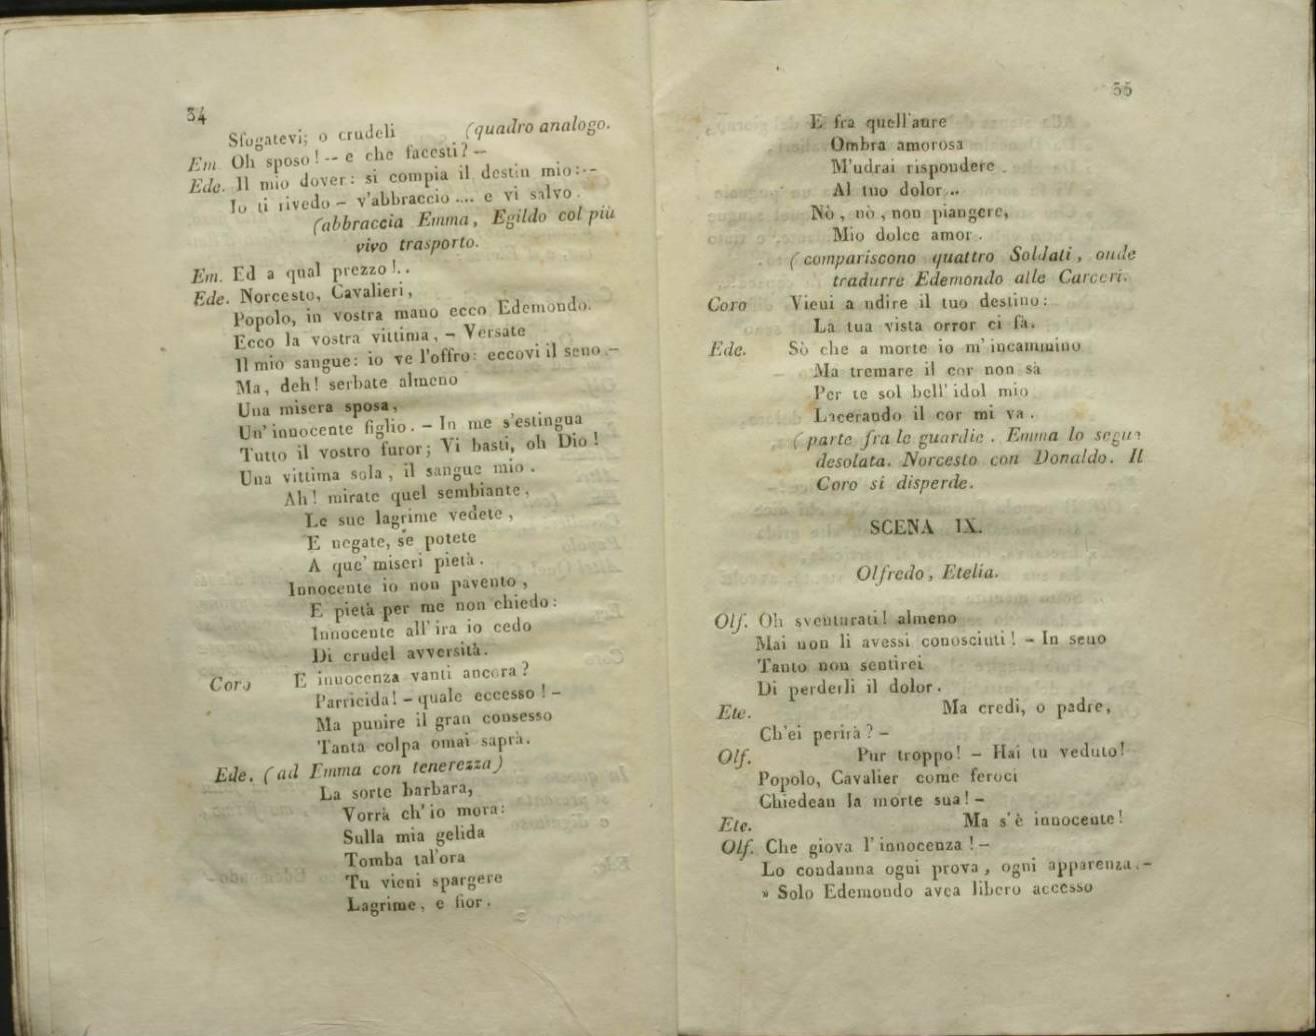 34
Sfogatevi; o crudeli (quadro analogo.
Em. Oh sposo! -- e che facesti? –
Ede. Il mio dover: si compia il destin mio: --
Io ti rivedo – v'abbraccio .... e vi salvo.
(abbraccia Emma, Egildo col più
vivo trasporto.
Em. Ed a qual prezzo!..
Ede. Norcesto, Cavalieri,
Popolo, in vostra mano ecco Edemondo.
Ecco la vostra vittima, – Versate
Il mio sangue: io ve l'offro: eccovi il seno –
Ma, deh! serbate almeno
Una misera sposa,
Un' innocente figlio. – In me s'estingua
Tutto il vostro furor; Vi basti, oh Dio!
Una vittima sola, il sangue mio.
Ah! mirate quel sembiante,
Le sue lagrime vedete,
E negate, se potete
A que' miseri pietà.
Innocente io non pavento,
E pietà per me non chiedo:
Innocente all' ira io cedo
Di crudel avversità.
Coro E innocenza vanti ancora?
Parricida! – quale eccesso! –
Ma punire il gran consesso
Tanta colpa omai saprà.
Ede. (ad Emma con tenerezza)
La sorte barbara,
Vorrà ch' io mora:
Sulla mia gelida
Tomba tal'ora
Tu vieni spargere
Lagrime, e fior.
35
E fra quell'aure
Ombra amorosa
M'udrai rispondere
Al tuo dolor...
Nò, nò, non piangere,
Mio dolce amor.
(compariscono quattro Soldati, onde
tradurre Edemondo alle Carceri.
Coro Vieni a udire il tuo destino:
La tua vista orror ci fà.
Ede. Sò che a morte io m' incammino
Ma tremare il cor non sà
Per te sol bell' idol mio
Lacerando il cor mi va.
(parte fra le guardie. Emma lo segue
desolata. Norcesto con Donaldo. Il
Coro si disperde.
SCENA IX.
Olfredo, Etelia.
Olf. Oh sventurati! almeno
Mai non li avessi conosciuti! – In seno
Tanto non sentirei
Di perderli il dolor.
Ete. Ma credi, o padre,
Ch'ei perirà? –
Olf. Pur troppo! – Hai tu veduto!
Popolo, Cavalier come feroci
Chiedean la morte sua! –
Ete. Ma s'è innocente!
Olf. Che giova l' innocenza! –
Lo condanna ogni prova, ogni apparenza. –
» Solo Edemondo avea libero accesso